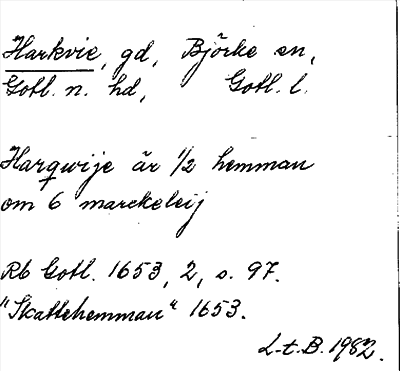 Harkvie, gd, Björke sn,
Gotl. n. hd, Gotl. l.
Harqwije är 1/2 hemman
om 6 marckeleij
Rb Gotl. 1653, 2, s. 97.
"Skattehemman" 1653.
L-t. B. 1982.